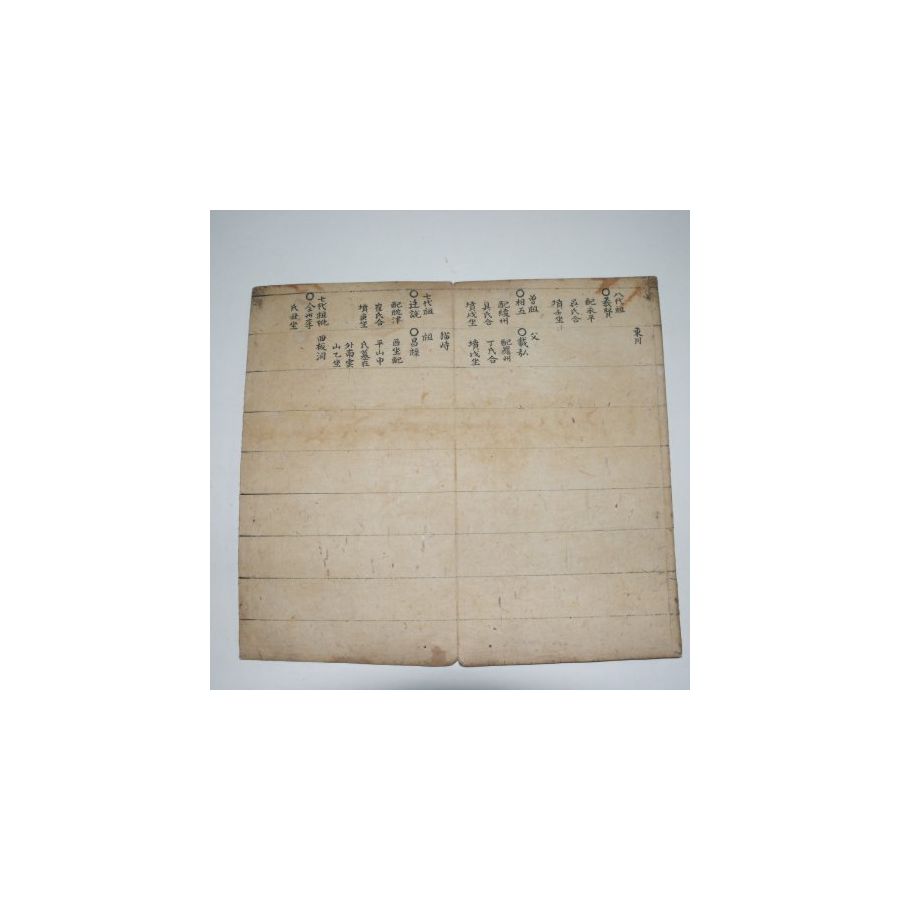 東川
八代祖
義賢
配永平
氏合
墳壬坐
曾祖
相五
配綾州
具氏合
墳戌坐
父
載弘
配羅州
丁氏合
墳戌坐
猫峙
七代祖
達說
配耽津
崔氏合
墳庚坐
祖
昌
酉坐配
平山申
氏墓在
外南雲
山乙坐
七代祖妣
全州李
氏丑坐
田板洞